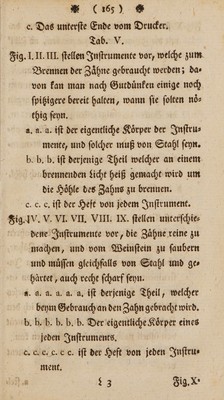 ( 165 )
c. Das unterste Ende vom Drucker.
Tab. V.
Fig. I. II. III. stellen Instrumente vor, welche zum
Brennen der Zähne gebraucht werden; da-
von kan man nach Gutdünken einige noch
spitzigere bereit halten, wann sie solten nö-
thig seyn.
a. a. a. ist der eigentliche Körper der Instru-
mente, und solcher muß von Stahl seyn.
b. b. b. ist derjenige Theil welcher an einem
brennenden Licht heiß gemacht wird um
die Höhle des Zahns zu brennen.
c. c. c. ist der Heft von jedem Instrument.
Fig. IV. V. VI. VII, VIII. IX. stellen unterschie-
dene Instrumente vor, die Zähne reine zu
machen, und vom Weinstein zu saubern
und müssen gleichfalls von Stahl und ge-
härtet, auch recht scharf seyn.
a. a. a. a. a. a, ist derjenige Theil, welcher
beym Gebrauch an den Zahn gebracht wird.
b. b. b. b. b. b. Der eigentliche Körper eines
jeden Instruments.
c. c. c. c. c. c. ist der Heft von jeden Instru-
ment.
L 3 Fig. X.